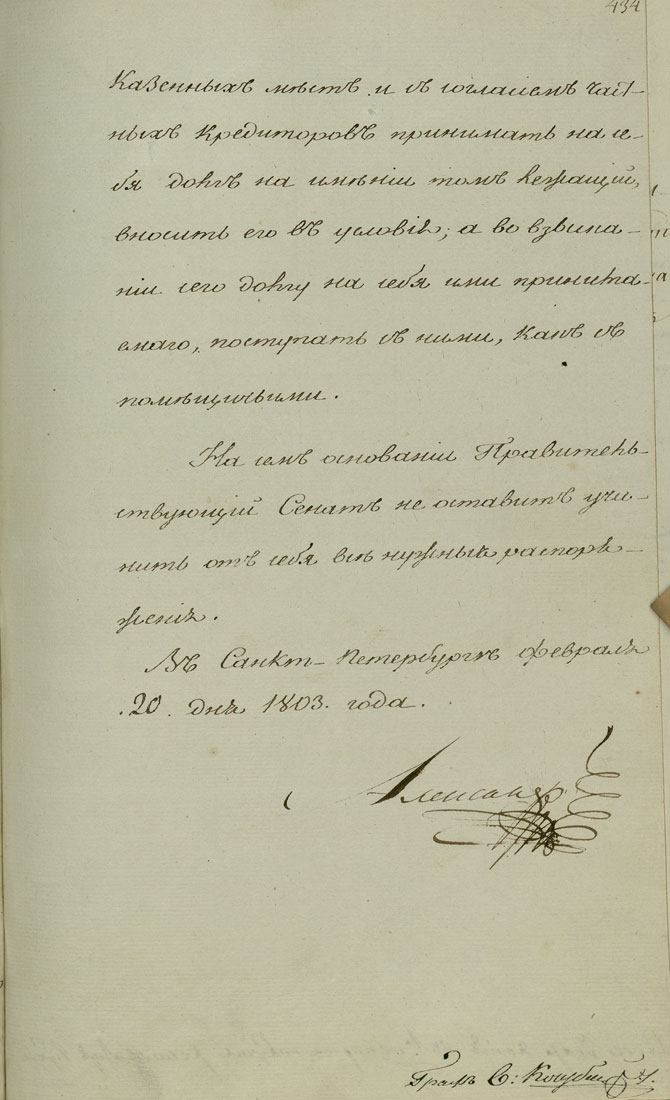 434
казенныхъ мѣстъ и съ согласіемъ част-
ныхъ кредиторовъ принимать на се-
бя долгъ на имѣніи томъ лежащій,
вносить его въ условія; а во взыска-
ніи сего долгу на себя ими принима-
емаго, поступать съ ними, какъ съ
помѣщичьими.
На семъ основаніи Правитель-
ствующій Сенатъ не оставитъ учи-
нить отъ себя всѣ нужныя распоря-
женія.
Въ Санкт-Петербургѣ февраля
.20. дня 1803. года.
Александръ
Графъ В: Кочубей